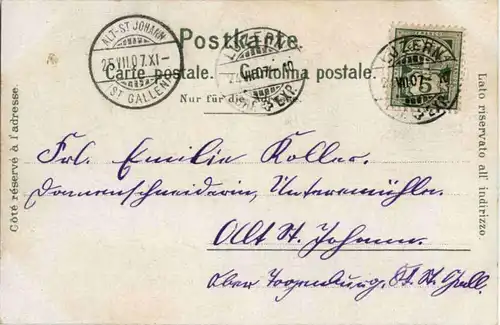 Postkarte
Carte postale. Cartolina postale.
Nur für die
Côté réservé à l'adresse.
Lato riservato all' indirizzo.
ALT-ST. JOHANN
25.VII.07.XI-
(ST. GALLEN)
LUZERN
VII.07
EXP.
LUZERN
VII.07
EXP.
5
Frl. Emilie Koller.
Damenschneiderin, Untere Mühle.
Alt St. Johann.
Ober Toggenburg, Kt. St. Gall.